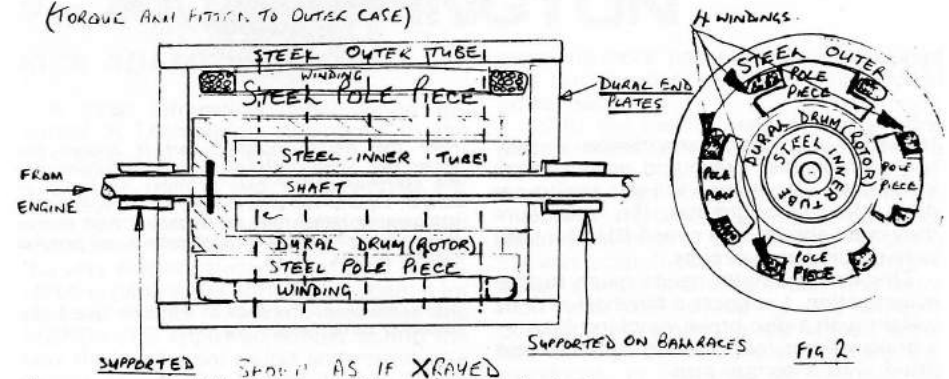 (TORQUE ARM FITTED TO OUTER CASE)
STEEL OUTER TUBE
WINDING
STEEL POLE PIECE
DURAL END
PLATES
STEEL INNER TUBE
FROM
ENGINE
SHAFT
DURAL DRUM (ROTOR)
STEEL POLE PIECE
WINDING
SUPPORTED
SHOWN AS IF XRAYED
SUPPORTED ON BALLRACES
4 WINDINGS.
STEEL OUTER
POLE
PIECE
DURAL DRUM (ROTOR)
STEEL INNER
TUBE
POLE
PIECE
POLE
PIECE
POLE
PIECE
FIG 2